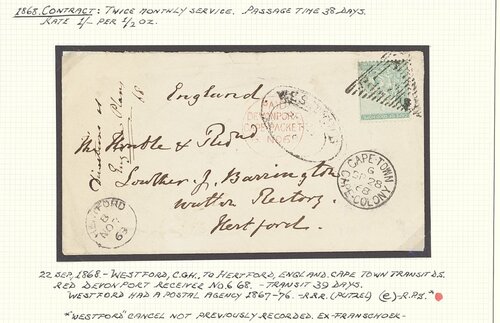 1868. CONTRACT: TWICE MONTHLY SERVICE. PASSAGE TIME 38 DAYS.
RATE 1/- PER 1/2 OZ.
England
WESTFORD
PAID
DEVONPORT
PACKET
NO 68
The Honble & Revd
Lowther J. Barrington
Watton Rectory
Hertford.
CAPE-TOWN
G
SP 28
68
CAPE-COLONY
HERTFORD
B
NO
22 SEP, 1868 - WESTFORD, C.G.H. TO HERTFORD, ENGLAND. CAPE TOWN TRANSIT D.S.
RED DEVONPORT RECEIVER NO 6 68. - TRANSIT 39 DAYS.
WESTFORD HAD A POSTAL AGENCY 1867-76. - R.R.R. (PUTZEL) (e) - R.P.S.*
*"WESTFORD" CANCEL NOT PREVIOUSLY RECORDED. EX-TRANSCHOER-